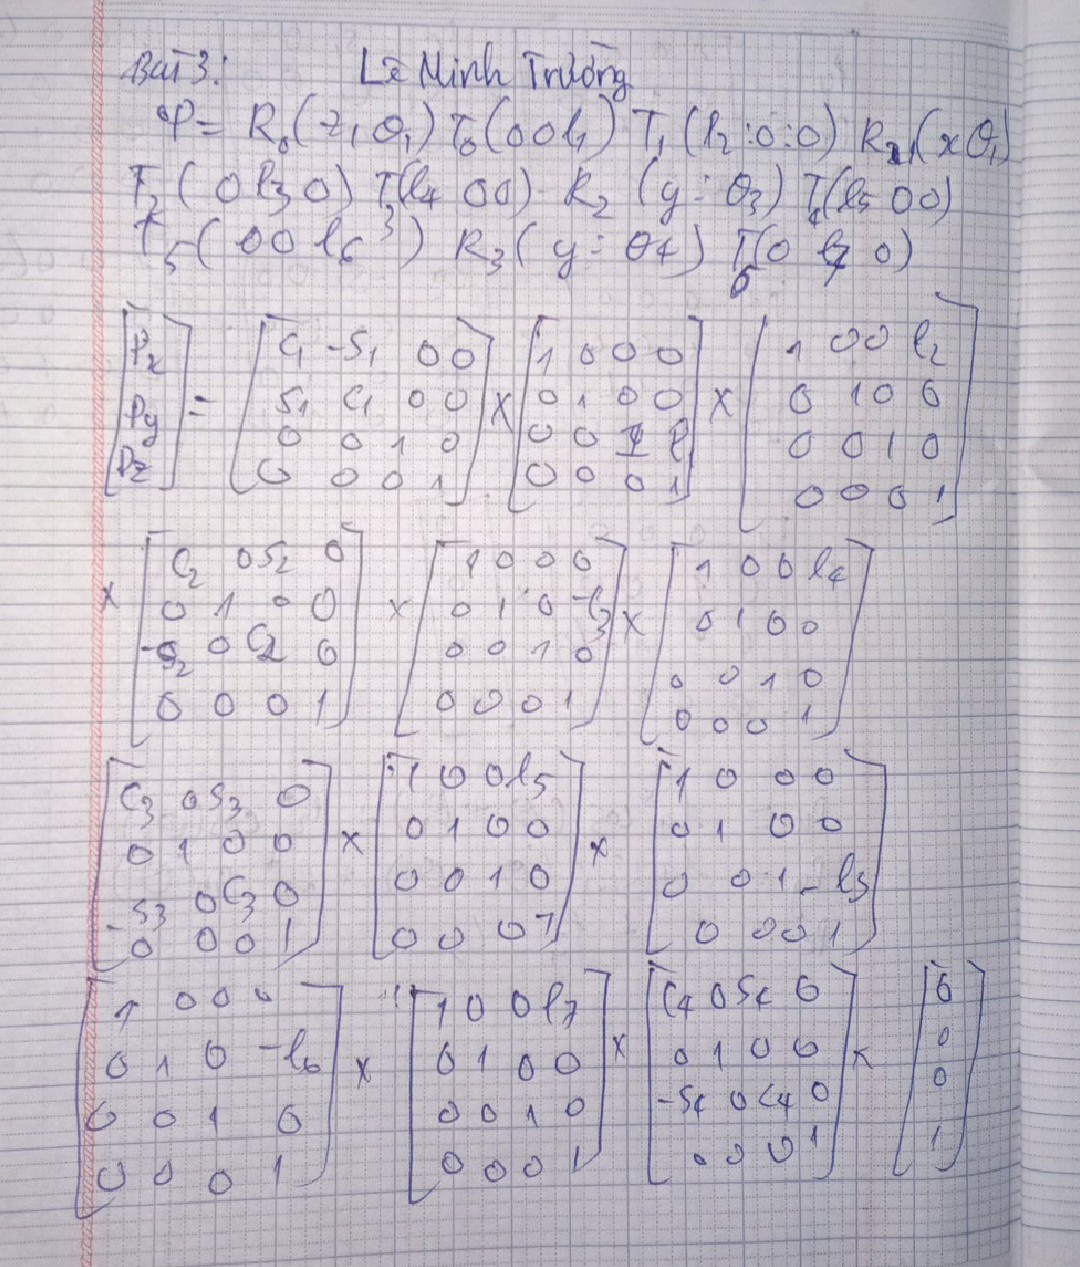 Bài 3: Lê Minh Trường
P = R₀(z, θ₁) T₀(0 0 l₁) T₁(l₂:0:0) R₁(x θ₁)
T₂(0 l₃ 0) T₃(l₄ 0 0) R₂(y: θ₃) T₄(l₅ 0 0)
T₅(0 0 l₆) R₃(y: θ₄) T₆(0 l₇ 0)
[Px Py Pz] = [C₁ -S₁ 0 0 / S₁ C₁ 0 0 / 0 0 1 0 / 0 0 0 1] x [1 0 0 0 / 0 1 0 0 / 0 0 1 l₁ / 0 0 0 1] x [1 0 0 l₂ / 0 1 0 0 / 0 0 1 0 / 0 0 0 1]
x [C₂ 0 S₂ 0 / 0 1 0 0 / -S₂ 0 C₂ 0 / 0 0 0 1] x [1 0 0 0 / 0 1 0 -l₃ / 0 0 1 0 / 0 0 0 1] x [1 0 0 l₄ / 0 1 0 0 / 0 0 1 0 / 0 0 0 1]
[C₃ 0 S₃ 0 / 0 1 0 0 / -S₃ 0 C₃ 0 / 0 0 0 1] x [1 0 0 l₅ / 0 1 0 0 / 0 0 1 0 / 0 0 0 1] x [1 0 0 0 / 0 1 0 0 / 0 0 1 -l₅ / 0 0 0 1]
[1 0 0 0 / 0 1 0 -l₆ / 0 0 1 0 / 0 0 0 1] x [1 0 0 l₇ / 0 1 0 0 / 0 0 1 0 / 0 0 0 1] x [C₄ 0 S₄ 0 / 0 1 0 0 / -S₄ 0 C₄ 0 / 0 0 0 1] x [0 / 0 / 0 / 1]